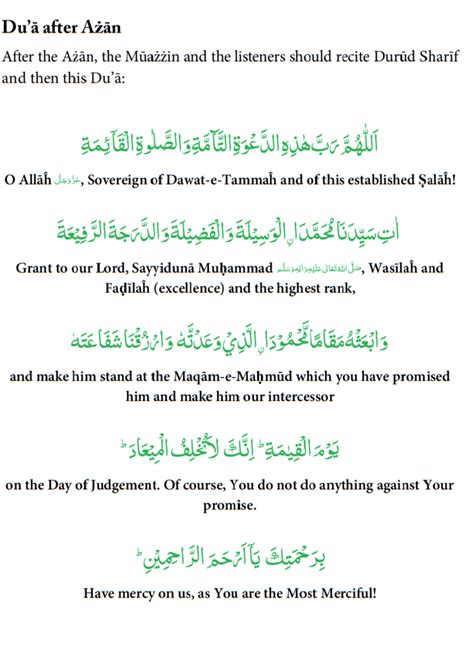 Du'ā after Ażān
After the Ażān, the Mūażżin and the listeners should recite Durūd Sharīf
and then this Du'ā:
اَللّٰهُمَّ رَبَّ هٰذِهِ الدَّعْوَةِ التَّآمَّةِ وَالصَّلٰوةِ الْقَآئِمَةِ
O Allāĥ عَزَّوَجَلَّ, Sovereign of Dawat-e-Tammaĥ and of this established Ṣalāĥ!
اٰتِ سَيِّدَنَا مُحَمَّدَا ۨ الْوَسِيْلَةَ وَالْفَضِيْلَةَ وَالدَّرَجَةَ الرَّفِيْعَةَ
Grant to our Lord, Sayyidunā Muḥammad صَلَّى اللهُ تَعَالٰى عَلَيْهِ وَاٰلِهٖ وَسَلَّم, Wasīlaĥ and
Faḍīlaĥ (excellence) and the highest rank,
وَابْعَثْهُ مَقَامًا مَّحْمُوْدَا ۨ الَّذِيْ وَعَدْتَّهٗ وَارْزُقْنَا شَفَاعَتَهٗ
and make him stand at the Maqām-e-Maḥmūd which you have promised
him and make him our intercessor
يَوْمَ الْقِيٰمَةِ ؕ اِنَّكَ لَا تُخْلِفُ الْمِيْعَادَ ؕ
on the Day of Judgement. Of course, You do not do anything against Your
promise.
بِرَحْمَتِكَ يَآ اَرْحَمَ الرَّاحِمِيْنَ ؕ
Have mercy on us, as You are the Most Merciful!